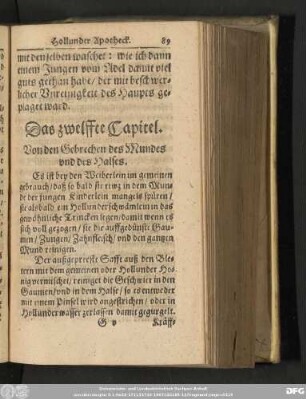 Hollunder Apotheck. 89
mit denselben waschet: wie ich dann
einem Jungen vom Adel damit viel
guts gethan habe/ der mit beschwer-
licher Vnreinigkeit des Haupts ge-
plaget ward.
Das zwelffte Capitel.
Von den Gebrechen des Mundes
vnd des Halses.
Es ist bey den Weiberlein im gemeinen
gebrauch/ daß so bald sie etwz in dem Mun-
de der jungen Kinderlein mangels spüren/
sie alsbald ein Hollunderschwämlein in das
gewöhnliche Trincken legen/ damit wenn es
sich voll gezogen/ sie die auffgedünste Gau-
men/ Zungen/ Zahnfleisch/ vnd den gantzen
Mund reinigen.
Der außgepreste Safft auß den Ble-
tern mit dem gemeinen oder Hollunder Ho-
nig vermischet/ reiniget die Geschwier in den
Gaumen/ vnd in dem Halse/ so es entweder
mit einem Pinsel wird angestrichen/ oder in
Hollunder wasser zerlassen damit gegürgelt.
G v Kräff-